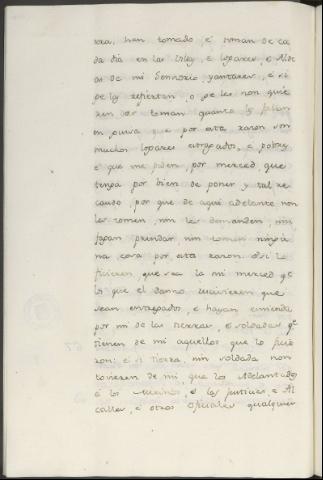 rra, han tomado, é toman de ca
da dia en las Villas e logares, e Alde
as de mi Sennorio yantares, é si
se lo refiertan, o se les non quie
ren dar toman quanto les fallan
en guisa que por esta razon son
muchos logares estragados, e pobres,
é que me piden, por merced, que
tenga por bien de poner y tal re
caudo, por que de aqui adelante non
les tomen, nin les demanden, nin
fagan prendar, nin tomen ningu
na cosa por esta razon. é si lo
ficieren, que sea la mi merced qe
lo que el danno recivieren que
sean entregados, e hayan emienda
por mi de las tierras, e soldadas qe
tienen de mi aquellos que lo ficie
ron: é si tierra, nin soldada non
tovieren de mi, que los Adelantados
é los Merinos, e las justicias, e Al
calles, é otros oficiales qualquier